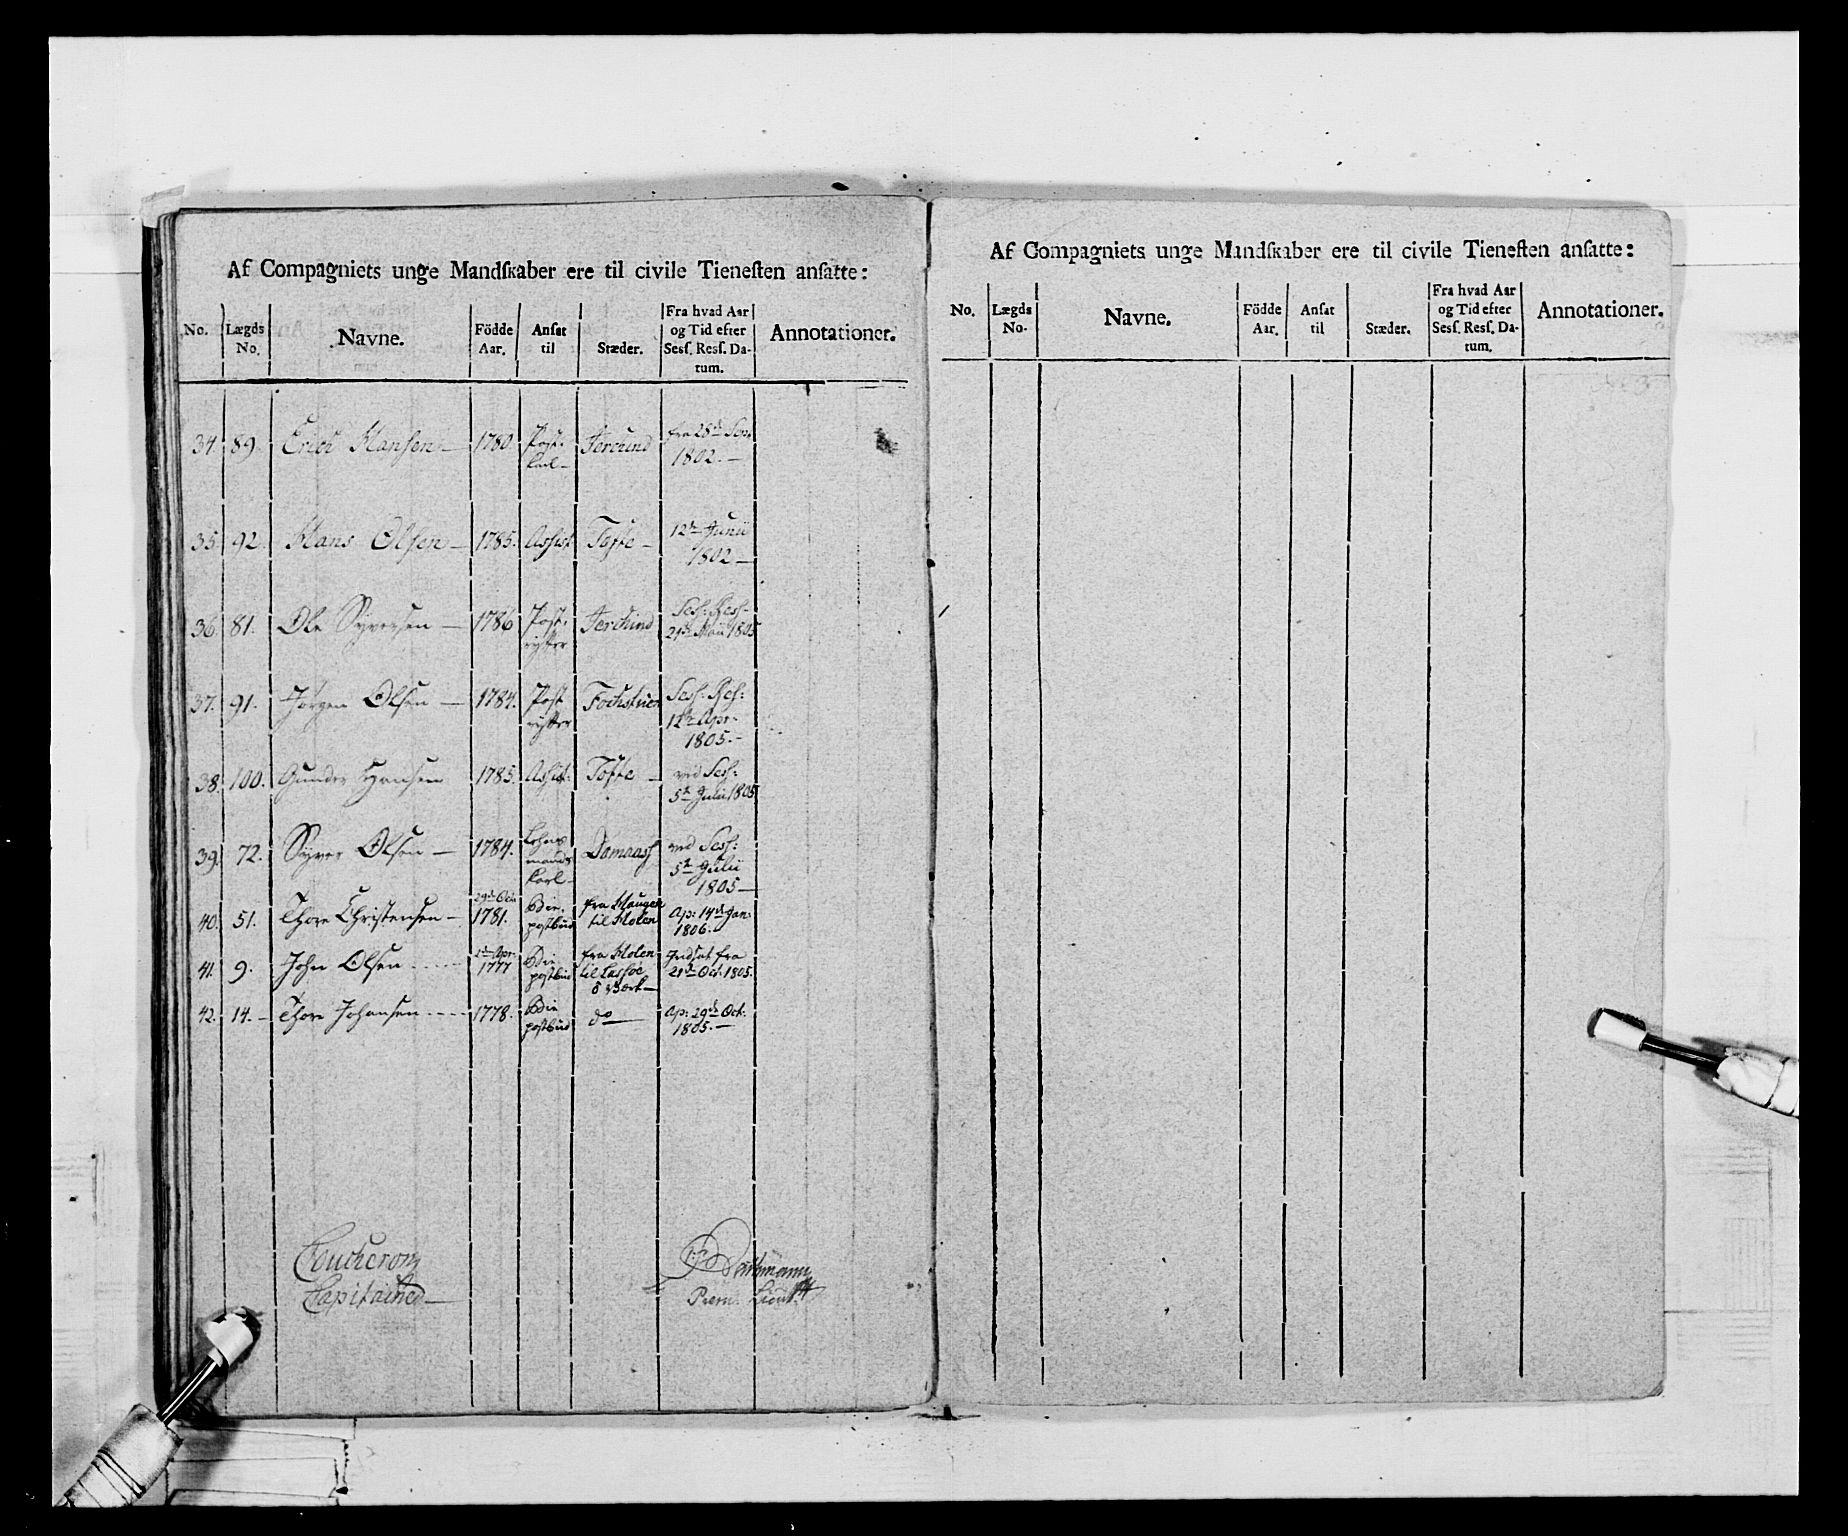 Af Compagniets unge Mandskaber ere til civile Tienesten ansatte:
No. Lægds No. Navne. Födde Aar. Ansat til Stæder. Fra hvad Aar og Tid efter Sess. Ress. Datum. Annotationer.
34. 89. Erich Hansen — 1780. Post- karl — Jerckind fra 28de Sep. 1802. —
35. 92. Hans Olsen — 1785. Assist. Tofte — 12te Junii 1802 —
36. 81. Ole Syversen — 1786 Post- rytter Jerckind Sess: Ress: 21de Maii 1805
37. 91. Jörgen Olsen — 1784. Post rytter Fochstuen Sess: Res: 12te Apr. 1805. —
38. 100. Gunder Hansen 1785. Assist: Tofte — ved Sess: 5te Julii 1805
39. 72. Syver Olsen — 1784. Lehns- mands karl — Domaas ved Sess: 5te Julii 1805 —
40. 51. Thore Christensen — 29de Oct. 1781. Bie- postbud fra Haugen til Molen Ap: 14de Jan. 1806.
41. 9. John Olsen 1777 Bie postbud fra Molen til Lassöe Værk — Indsat fra 21de Oct. 1805.
42. 14. — Thore Johansen 1778. Bie postbud do — Ap: 29de Oct. 1805. —
Coucheron
Capitaine —
Prem. Lieut.
Af Compagniets unge Mandskaber ere til civile Tienesten ansatte:
No. Lægds No. Navne. Födde Aar. Ansat til Stæder. Fra hvad Aar og Tid efter Sess. Ress. Datum. Annotationer.